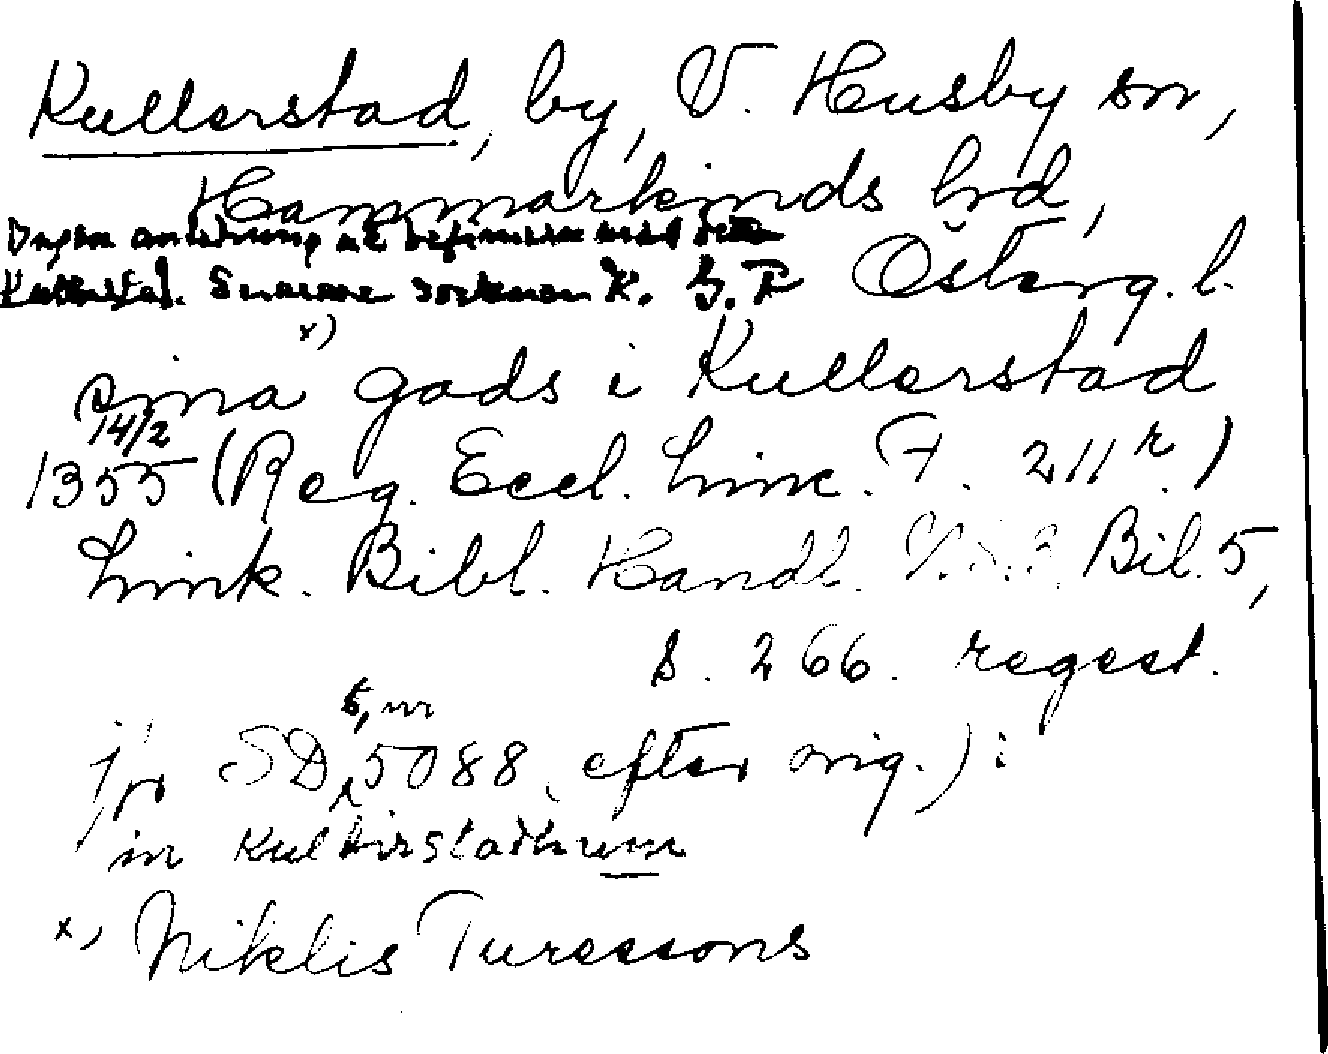 Kullerstad, by, V. Husby sn,
Hammarkinds hrd,
Ingen anledning att befinna med detta
Kullerstad. Snarare socknen K. G. F
Österg. l.
x)
sina gods i Kullerstad
14/2
1355 (Reg. Eccl. Linc. F. 211r.)
Link. Bibl. Handl. Bil. 5,
s. 266. regest.
jfr SD 5, nr 5088, efter orig.):
in Kulhirstadhum
x) Niklis Turessons